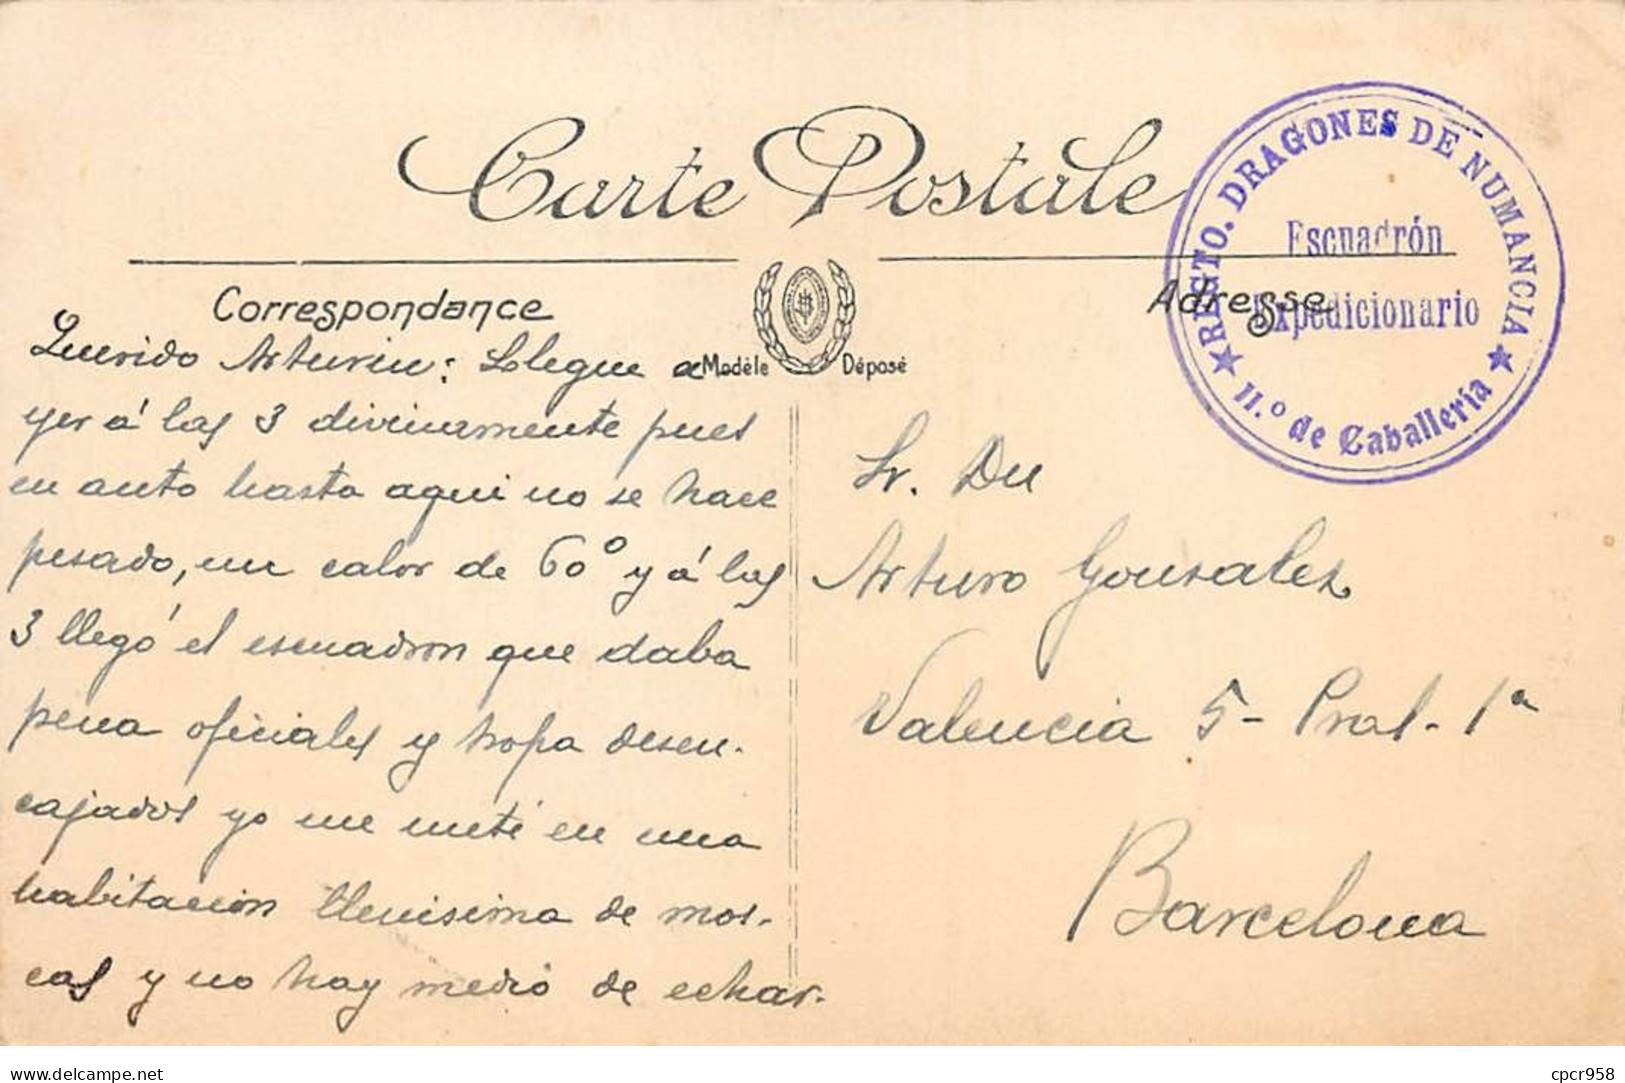 Carte Postale
REGTO. DRAGONES DE NUMANCIA
11.º de Caballería
Escuadrón
Expedicionario
Correspondance
Adresse
Modèle Déposé
Querido Arturín: Llegue a
yer á las 3 divinamente pues
en auto hasta aqui no se hace
pesado, un calor de 60º y á las
3 llegó el escuadron que daba
pena oficiales y tropa desen-
cajados yo me meti en una
habitación llenisima de mos-
cas y no hay medio de echar-
Sr. Dn
Arturo Gonsalez
Valencia 5- Pral- 1ª
Barcelona
delcampe.net
cpcr958